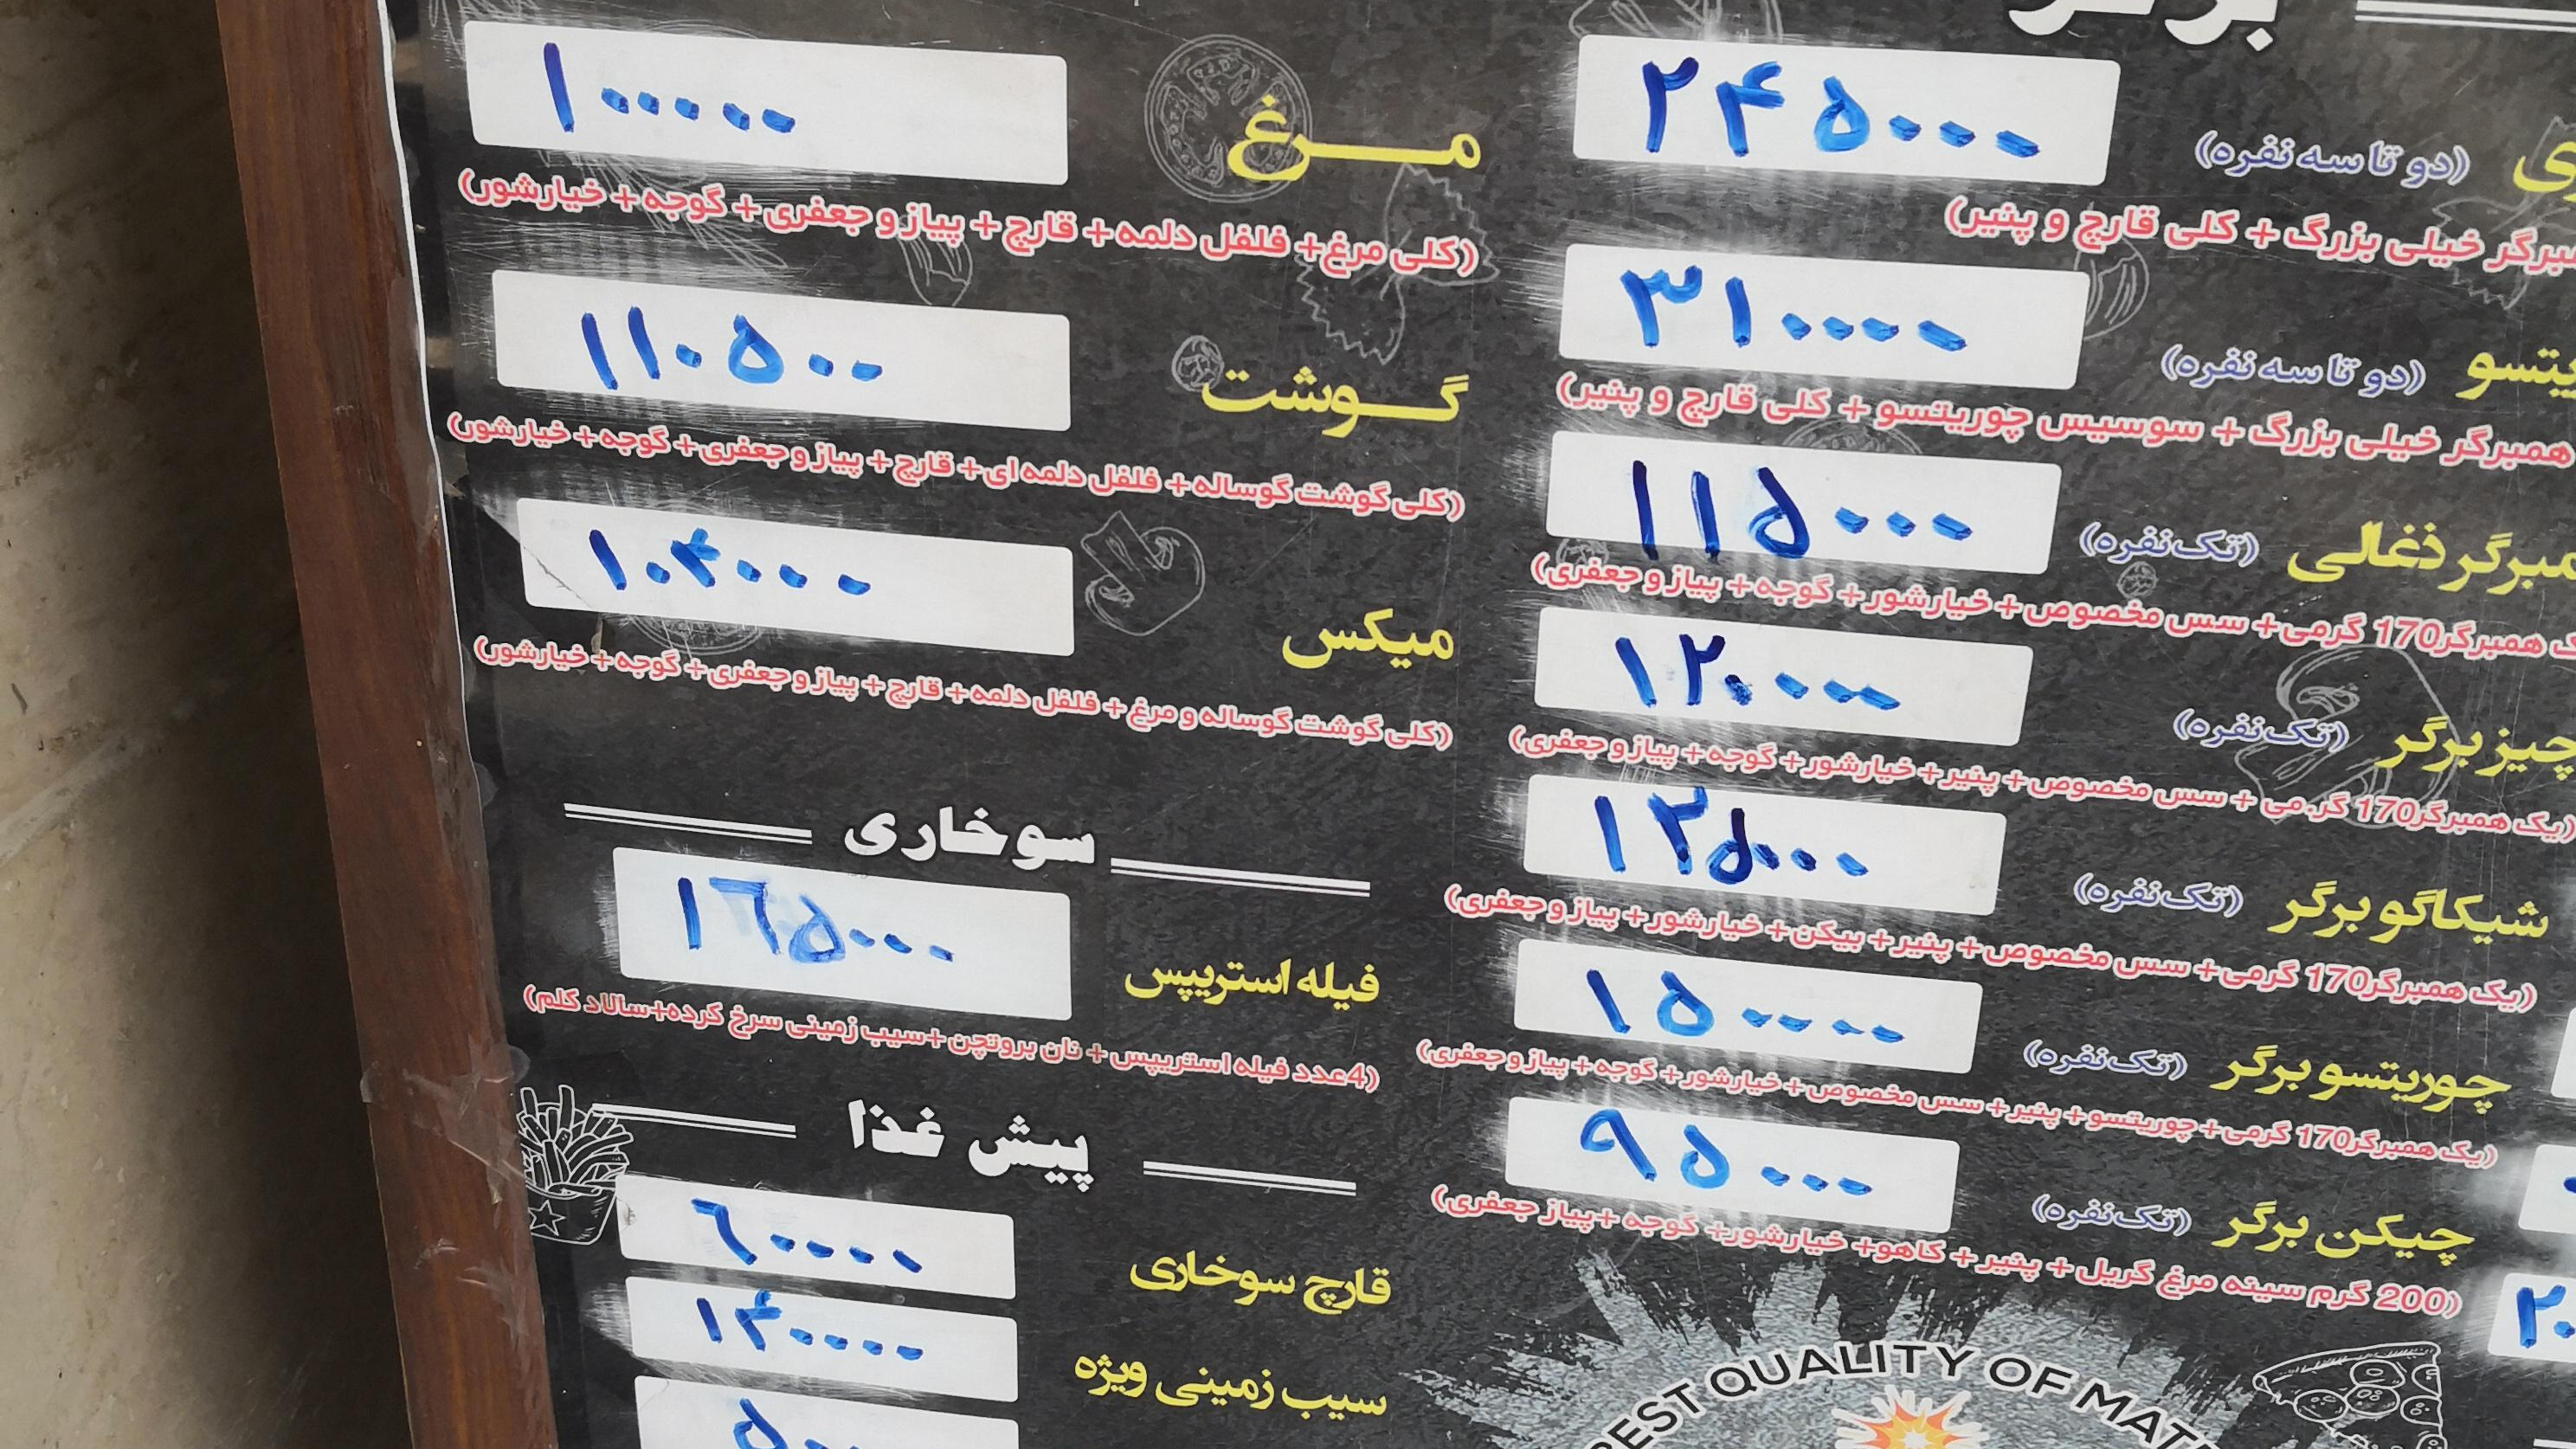 برگر
(دو تا سه نفره) ۲۴۵۰۰۰
همبرگر خیلی بزرگ + کلی قارچ و پنیر)
(دو تا سه نفره) ۳۱۰۰۰۰
همبرگر خیلی بزرگ + سوسیس چوریتسو + کلی قارچ و پنیر)
همبرگر ذغالی (تک‌نفره) ۱۱۵۰۰۰
یک همبرگر170 گرمی+ سس مخصوص + خیارشور + گوجه + پیاز و جعفری)
چیز برگر (تک‌نفره) ۱۲۰۰۰۰
(یک همبرگر170 گر.می + سس مخصوص + پنیر + خیارشور + گوجه + پیاز و جعفری)
شیکاگو برگر (تک‌نفره) ۱۳۵۰۰۰
(یک همبرگر170 گرمی+ سس مخصوص + پنیر + بیکن + خیارشور + پیاز و جعفری)
چوریتسو برگر (تک‌نفره) ۱۵۰۰۰۰
(یک همبرگر170 گرمی+ چوریتسو + پنیر + سس مخصوص + خیارشور + گوجه + پیاز و جعفری)
چیکن برگر (تک‌نفره) ۹۵۰۰۰
(200 گرم سینه مرغ گریل + پنیر + کاهو+ خیارشور+ گوجه +پیاز جعفری)
BEST QUALITY OF MAT
مرغ ۱۰۰۰۰۰
(کلی مرغ+ فلفل دلمه + قارچ + پیاز و جعفری + گوجه + خیارشور)
گوشت ۱۱۰۵۰۰
(کلی گوشت گوساله + فلفل دلمه ای + قارچ + پیاز و جعفری + گوجه + خیارشور)
میکس ۱۰۴۰۰۰
(کلی گوشت گوساله و مرغ + فلفل دلمه + قارچ + پیاز و جعفری + گوجه + خیارشور)
سوخاری
فیله استریپس ۱۶۵۰۰۰
(4عدد فیله استریپس + نان بروتچن +سیب زمینی سرخ کرده+سالاد کلم)
پیش غذا
قارچ سوخاری ۶۰۰۰۰
سیب زمینی ویژه ۱۴۰۰۰۰